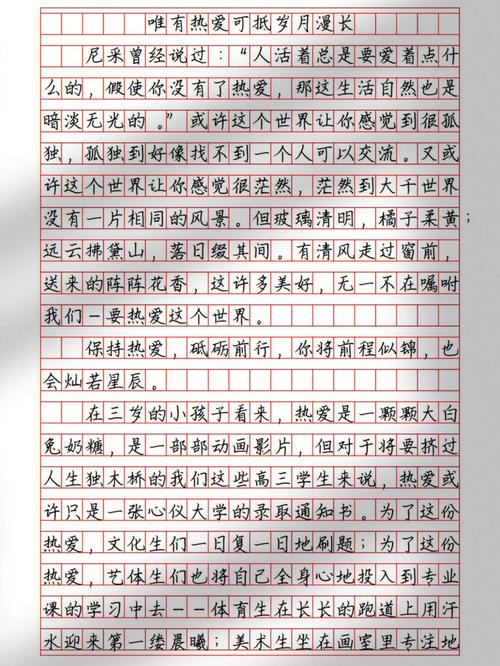 唯有热爱可抵岁月漫长
尼采曾经说过：“人活着总是要爱着点什
么的，假使你没有了热爱，那这生活自然也是
暗淡无光的。”或许这个世界让你感觉到很孤
独，孤独到好像找不到一个人可以交流。又或
许这个世界让你感觉很茫然，茫然到大千世界
没有一片相同的风景。但玻璃清明，橘子柔黄；
远云拂黛山，落日缀其间。有清风走过窗前，
送来的阵阵花香，这许多美好，无一不在嘱咐
我们－要热爱这个世界。
保持热爱，砥砺前行，你将前程似锦，也
会灿若星辰。
在三岁的小孩子看来，热爱是一颗颗大白
兔奶糖，是一部部动画影片，但对于将要挤过
人生独木桥的我们这些高三学生来说，热爱或
许只是一张心仪大学的录取通知书。为了这份
热爱，文化生们一日复一日地刷题；为了这份
热爱，艺体生们也将自己全身心地投入到专业
课的学习中去－－体育生在长长的跑道上用汗
水迎来第一缕晨曦；美术生坐在画室里专注地